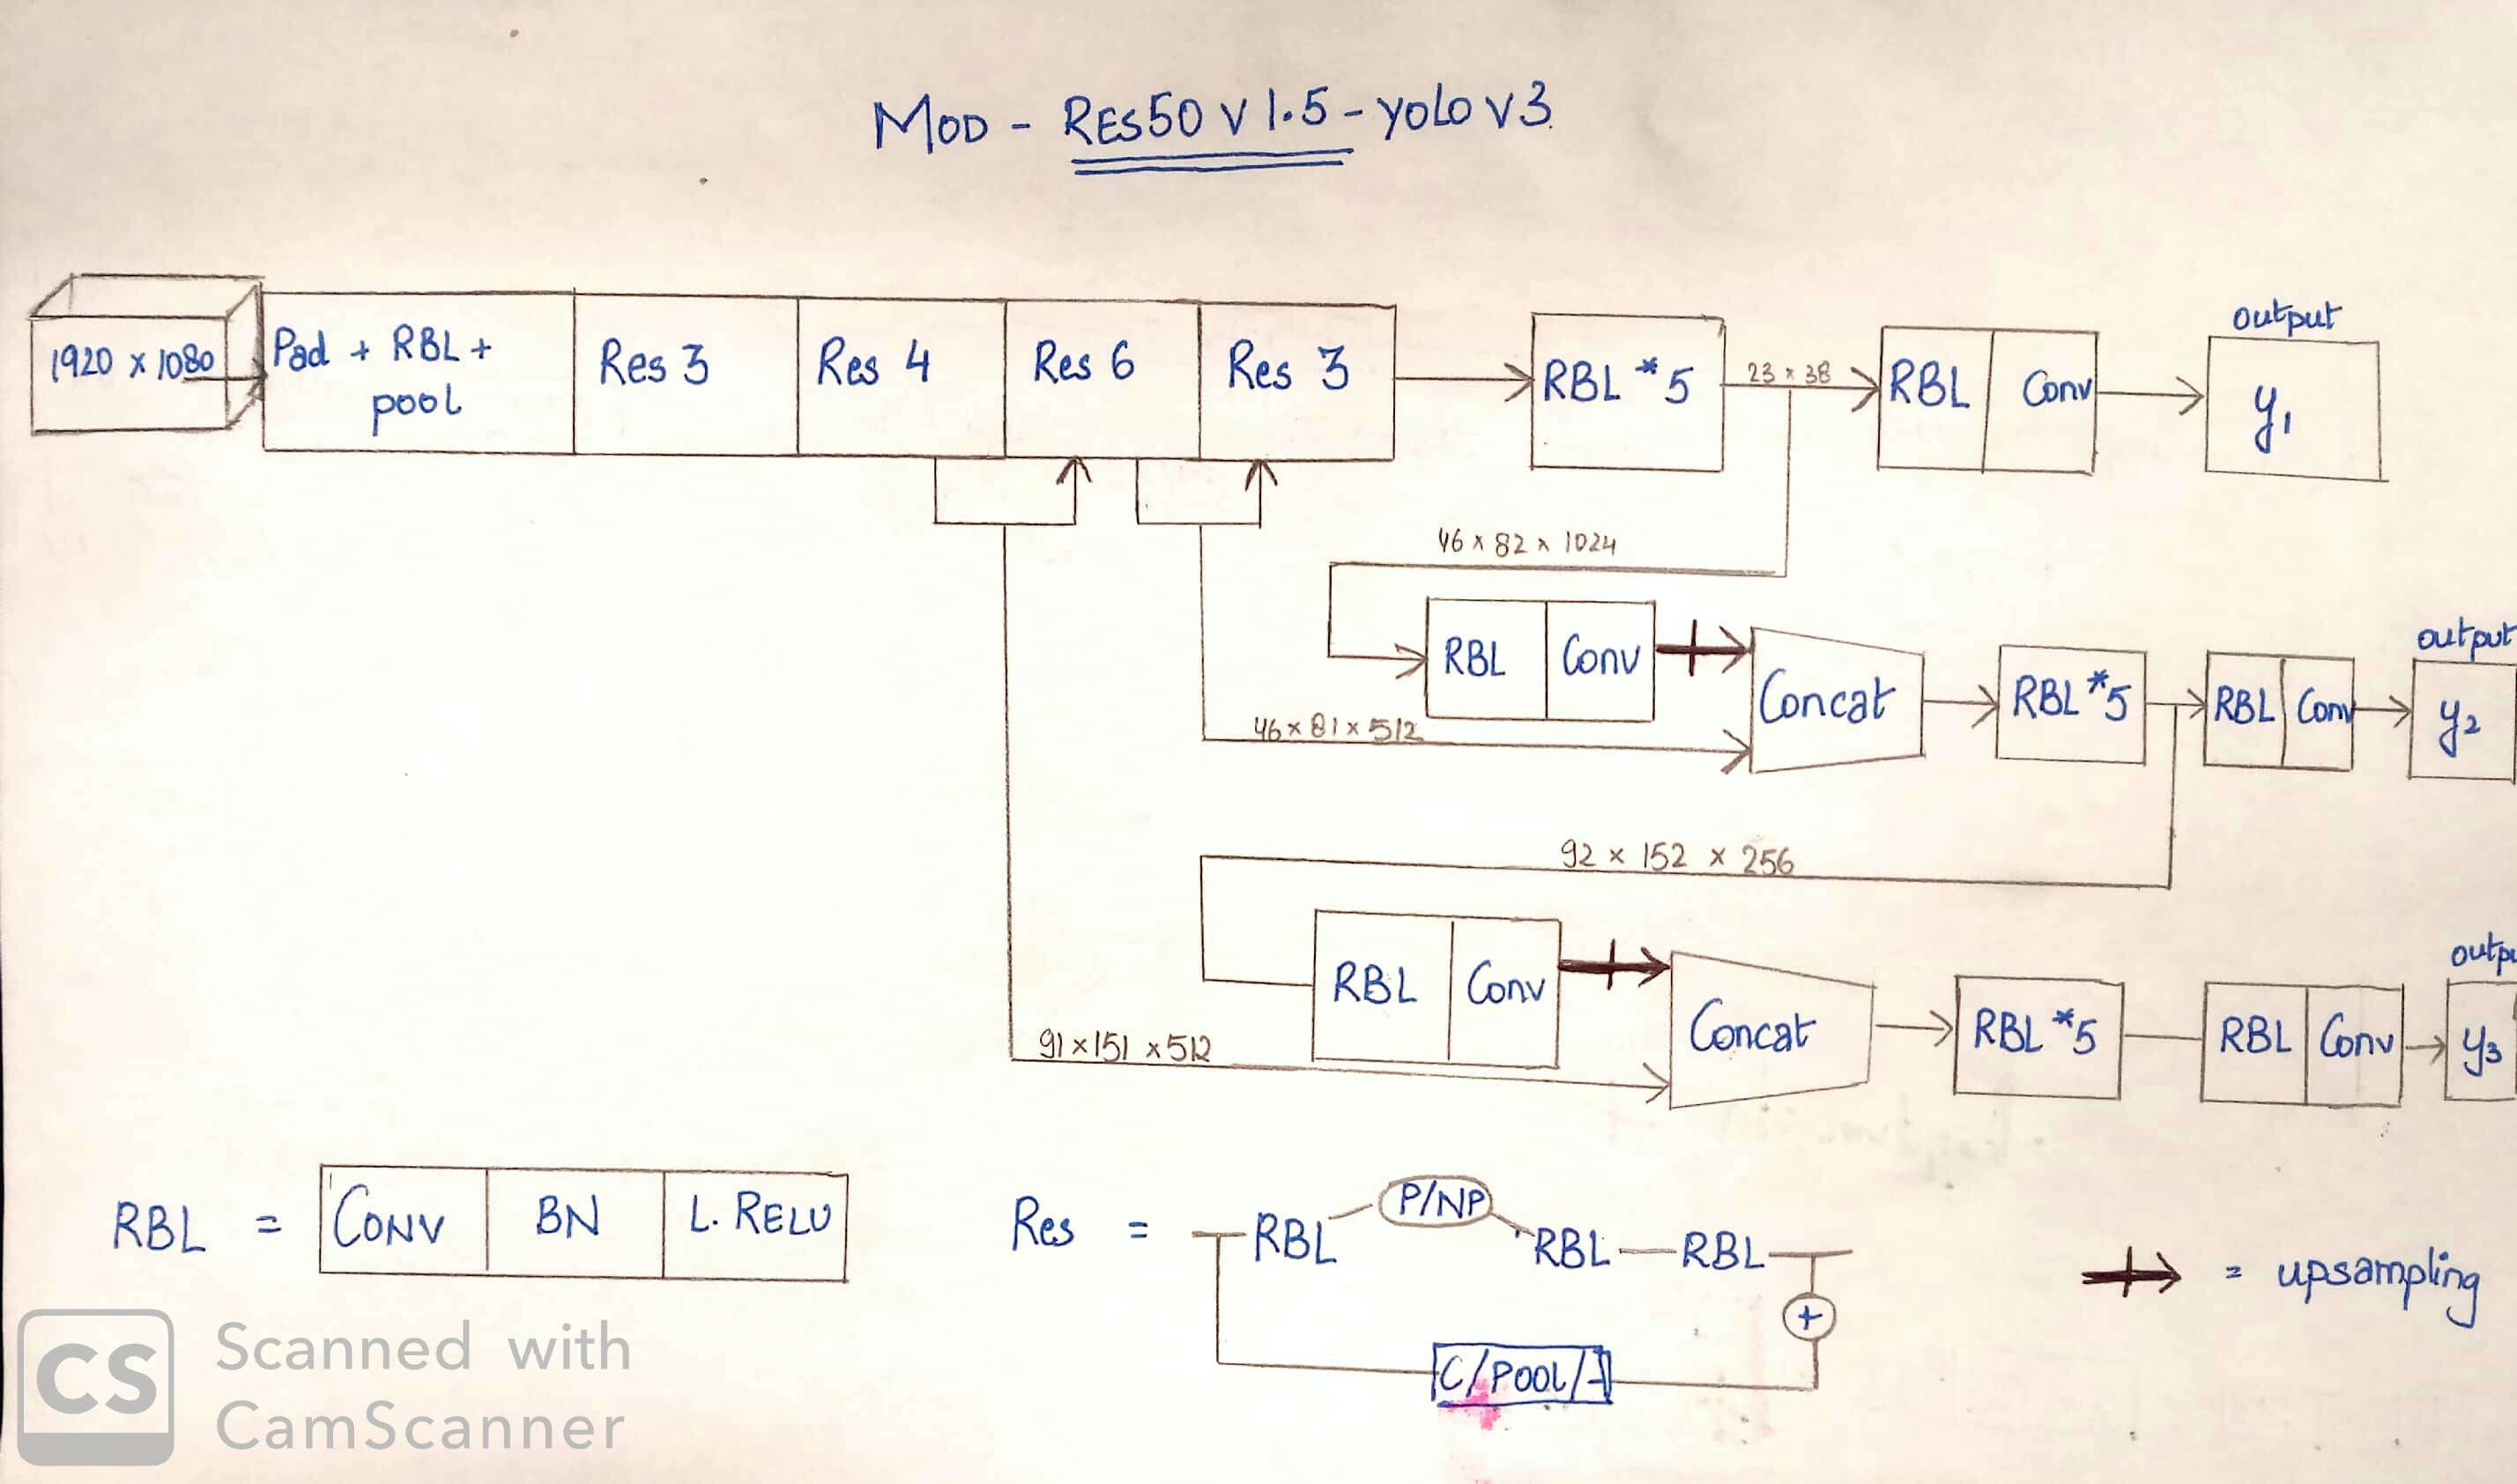 MOD - RES50 V 1.5 - YOLO V3
1920 x 1080
Pad + RBL +
pool
Res 3
Res 4
Res 6
Res 3
RBL *5
23 x 38
RBL
Conv
output
y1
46 x 82 x 1024
RBL
Conv
Concat
46 x 81 x 512
RBL *5
RBL
Conv
output
y2
92 x 152 x 256
RBL
Conv
Concat
91 x 151 x 512
RBL *5
RBL
Conv
outpu
y3
RBL = CONV BN L. RELU
Res = RBL P/NP RBL RBL
+
C/POOL/
= upsampling
CS
Scanned with
CamScanner